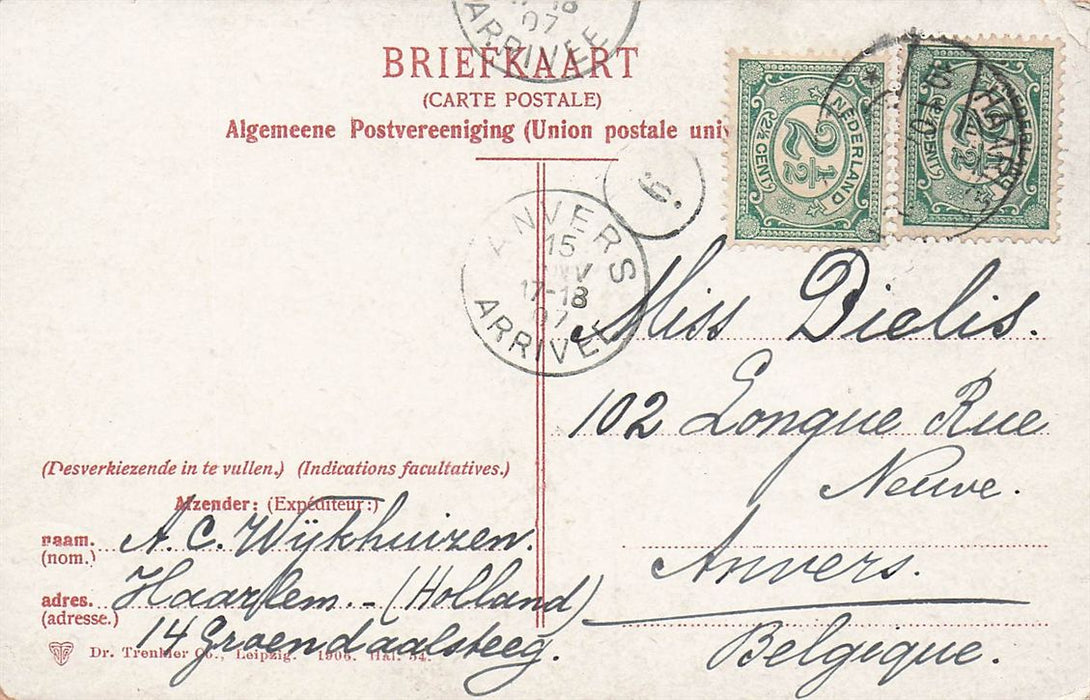 18
07
ARRIVÉE
BRIEFKAART
(CARTE POSTALE)
Algemeene Postvereeniging (Union postale univ
NEDERLAND
2½
2½ CENT
NEDERLAND
2½
2½ CENT
HAARL
6
ANVERS
15
17-18
07
ARRIVÉE
Miss Dielis.
102 Longue Rue
Neuve.
Anvers.
Belgique.
(Desverkiezende in te vullen.) (Indications facultatives.)
Afzender: (Expéditeur:)
naam. A. C. Wijkhuizen.
(nom.)
adres. Haarlem. - (Holland)
(adresse.)
14 Groendaalsteeg.
Dr. Trenkler Co., Leipzig. 1906. Hal. 34.